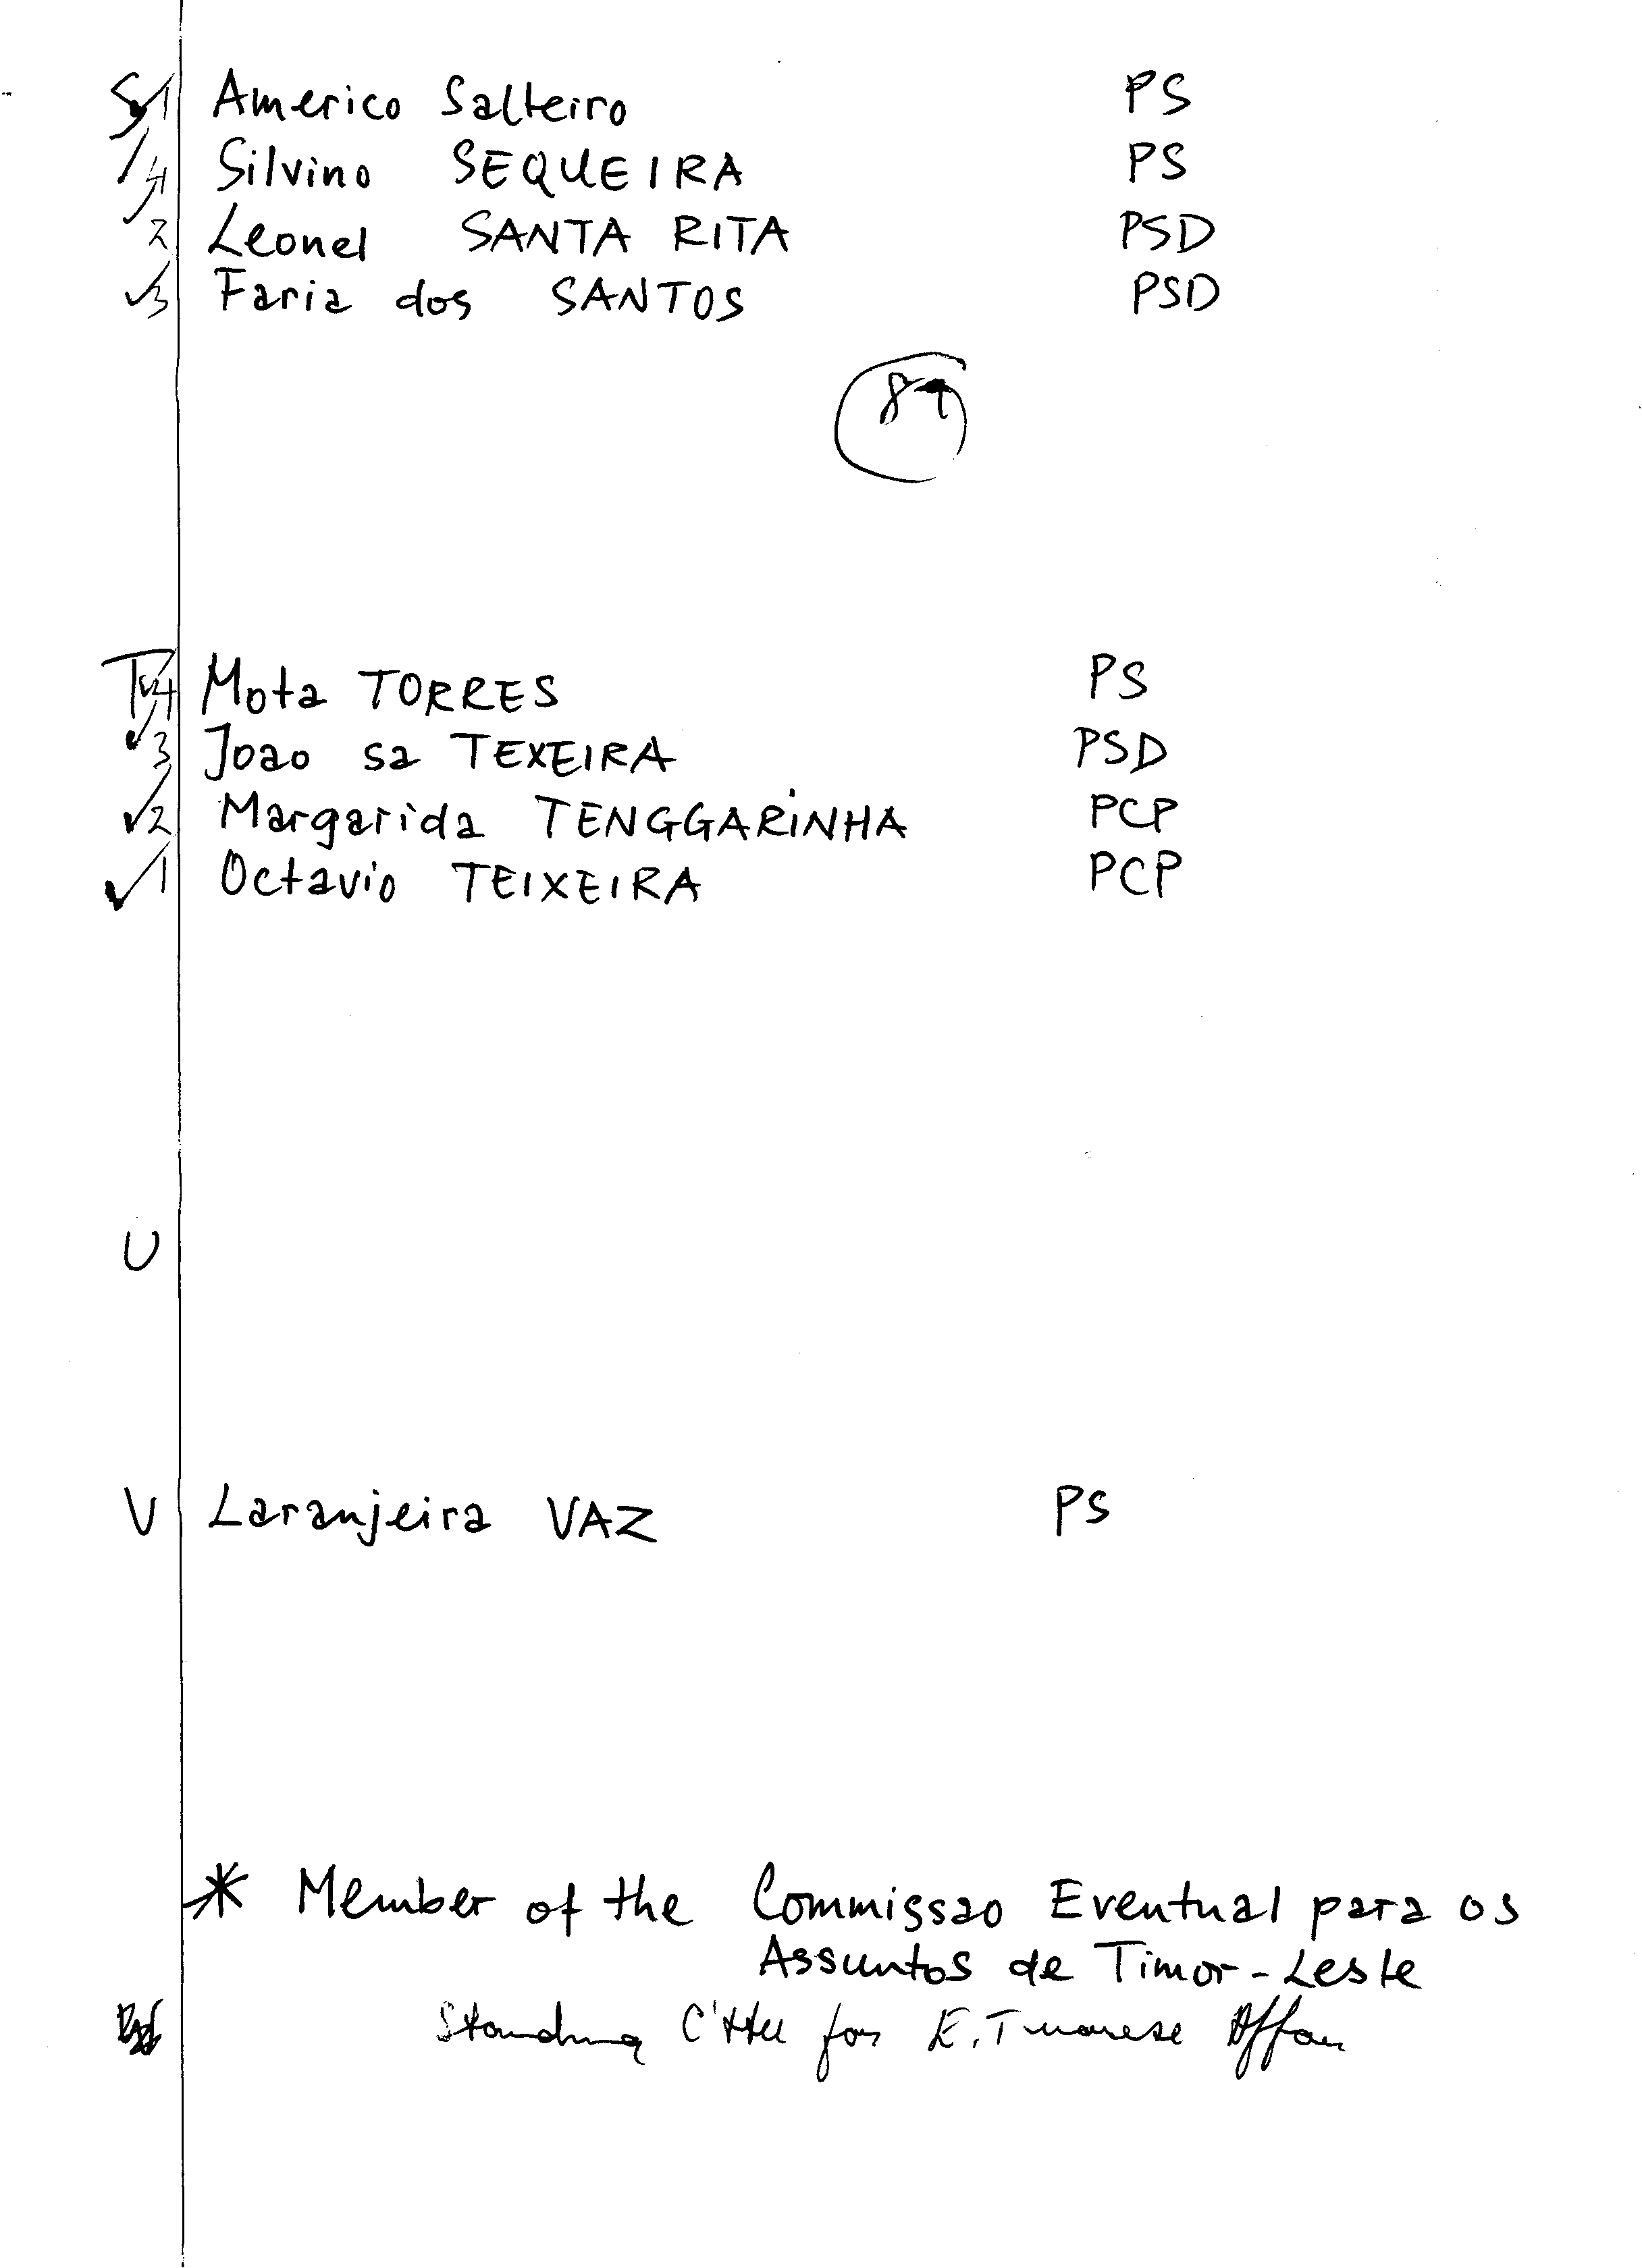 S ✓1 Americo Salteiro PS
✓4 Silvino SEQUEIRA PS
✓2 Leonel SANTA RITA PSD
✓3 Faria dos SANTOS PSD
89
T ✓4 Mota TORRES PS
✓3 Joao sa TEXEIRA PSD
✓2 Margarida TENGGARINHA PCP
✓1 Octavio TEIXEIRA PCP
U
V Laranjeira VAZ PS
* Member of the Commissao Eventual para os
Assuntos de Timor-Leste
Standing C'ttee for E. Timorese Affair